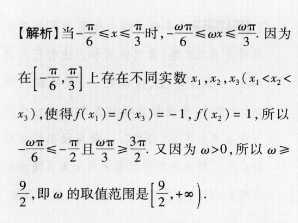 【解析】当$-\frac{\pi}{6} \leqslant x \leqslant \frac{\pi}{3}$时, $-\frac{\omega\pi}{6} \leqslant \omega x \leqslant \frac{\omega\pi}{3}$. 因为
在$\left[-\frac{\pi}{6}, \frac{\pi}{3}\right]$上存在不同实数 $x_1, x_2, x_3 (x_1 < x_2 <$
$x_3)$, 使得$f(x_1) = f(x_3) = -1, f(x_2) = 1$, 所以
$-\frac{\omega\pi}{6} \leqslant -\frac{\pi}{2}$且$\frac{\omega\pi}{3} \geqslant \frac{3\pi}{2}$. 又因为 $\omega > 0$, 所以 $\omega \geqslant$
$\frac{9}{2}$, 即 $\omega$ 的取值范围是$\left[\frac{9}{2}, +\infty\right)$.